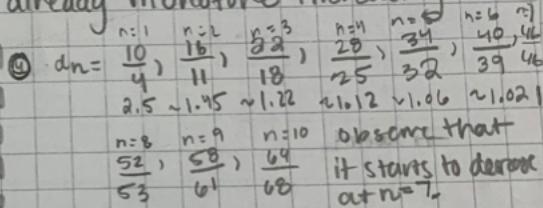 already monotone
n=1 n=2 n=3 n=4 n=5 n=6 n=7
④ dn = 10/4, 16/11, 22/18, 28/25, 34/32, 40/39, 46/46
2.5 ~1.45 ~1.22 ~1.12 ~1.06 ~1.021
n=8 n=9 n=10 observe that
52/53, 58/61, 64/68 it starts to
at n=7.